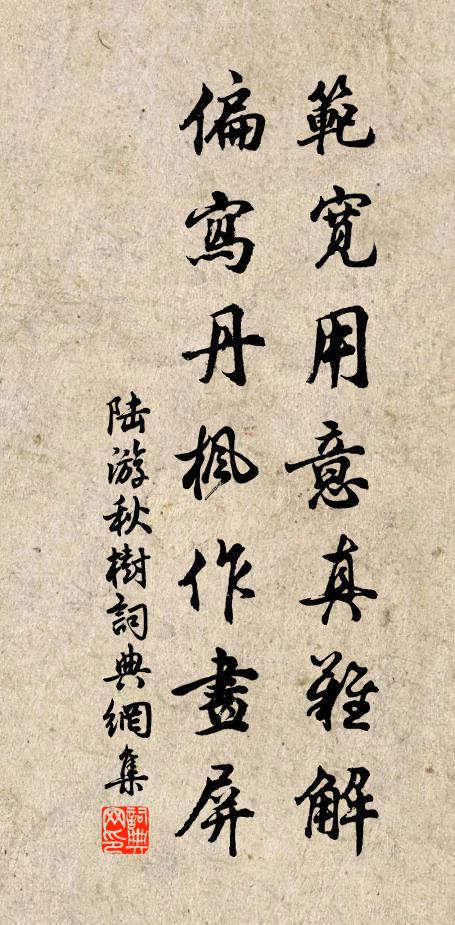 範寬用意真難解
偏寫丹楓作畫屏
陆游秋樹詞典網集
詞典网印